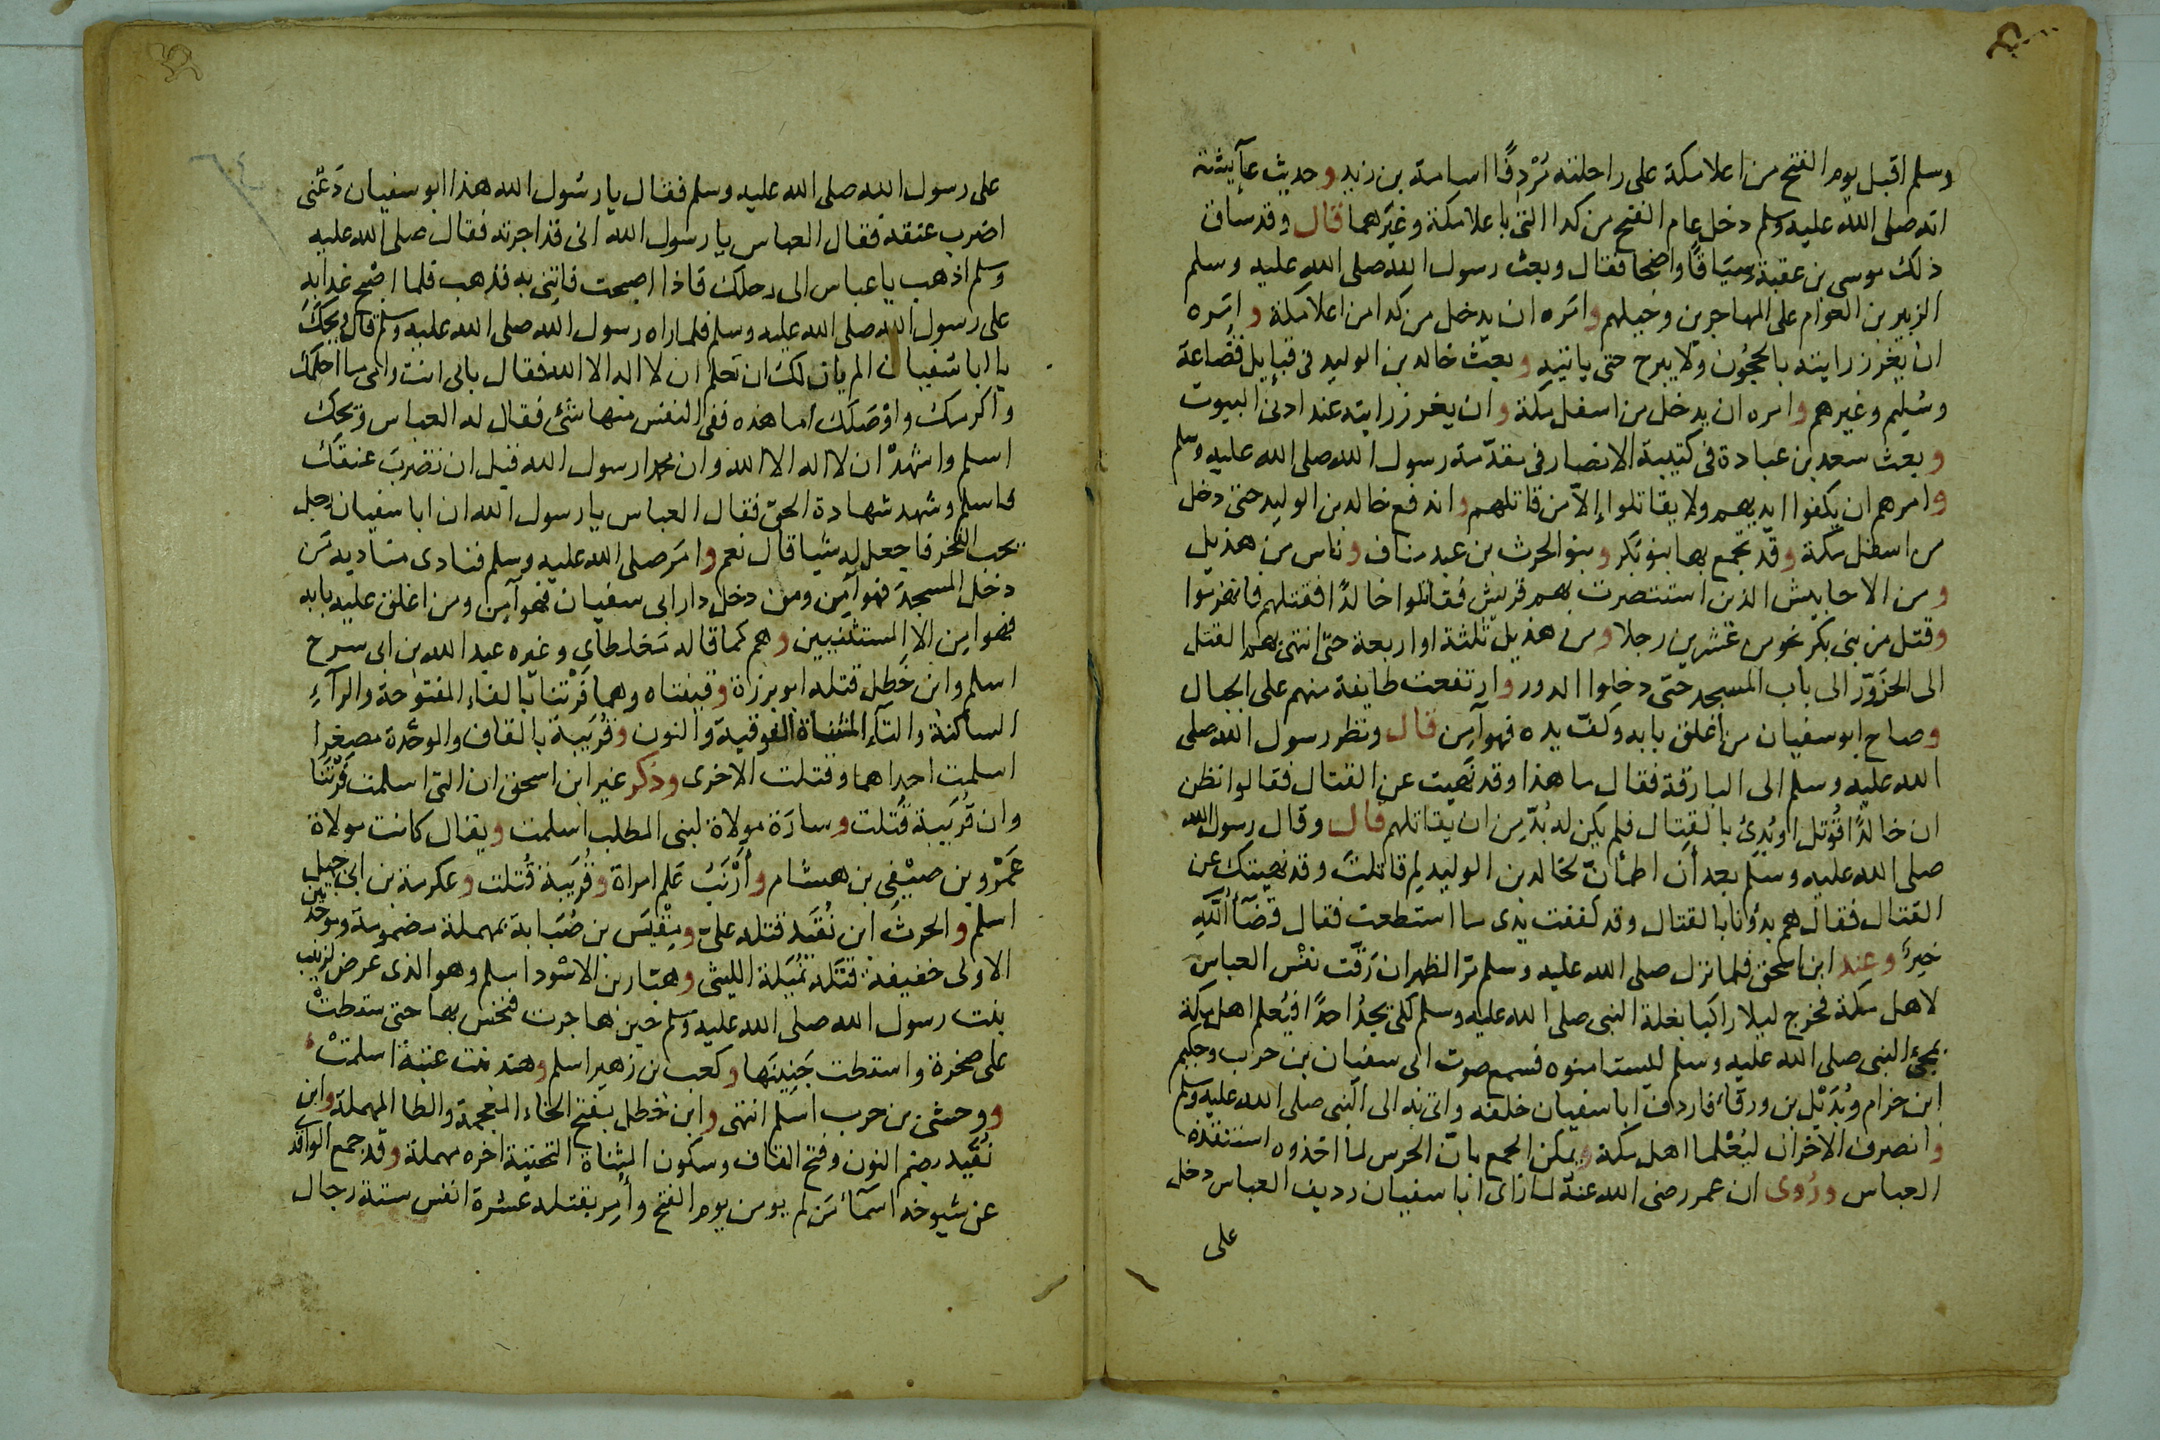 وسلم اقبل يوم الفتح من اعلا مكة على راحلته مُرْدِفًا اسامة بن زيد وحديث عآيشة
انه صلى الله عليه وسلم دخل عام الفتح من كدا التى باعلا مكة وغيرهما قال وقد ساق
ذلك موسى بن عقبة سيَاقًا واضحا فقال وبعث رسول الله صلى الله عليه وسلم
الزبير بن العوام على المهاجرين وخيلهم وامَره ان يدخل من كدا من اعلا مكة وامَره
ان يغرز رايته بالحجُون ولا يبرح حتى ياتيه وبعث خالد بن الوليد فى قبايل قضاعة
وسُليم وغيرهم وامره ان يدخل من اسفل مكة وان يغرز رايته عند ادنى البيوت
وبعث سعد بن عبادة فى كتيبة الانصار فى مقدّمة رسول الله صلى الله عليه وسلم
وامرهم ان يكفوا ايديهم ولا يقاتلوا إلاّ من قاتلهم واندفع خالد بن الوليد حتى دخل
من اسفل مكة وقد تجمع بها بنو بَكر وبنو الحرث بن عبد مناف وناس من هذيل
ومن الاحابيش الذين استنصرت بهم قريش فقاتلوا خالدًا فقتلهم فانهزموا
وقتل من بنى بكر نحو من عشرين رجلا ومن هذيل ثلثة او اربعة حتى انتهى بهم القتل
الى الحَزْوَرَّ الى باب المسجد حتى دخلوا الدور وارتفعت طايفة منهم على الجبال
وصاح ابو سفيان من أغلق بابه وكفّ يده فهو آمِن قال ونظر رسول الله صلى
الله عليه وسلم الى البارقة فقال ما هذا وقد نَهيت عن القتال فقالوا نظن
ان خالدًا قُوتل وبُدِئ بالقِتال فلم يكن له بُدّ مِن ان يقاتلهم قال وقال رسول الله
صلى الله عليه وسلم بعد أن اطمأنّ لخالد بن الوليد لِم قاتلتَ وقد نهيتك عن
القتال فقال هم بدؤنا بالقتال وقد كففت يدى ما استطعت فقال قضَآءُ اللَّهِ
خيرٌ وعند ابن اسحق فلما نزل صلى الله عليه وسلم مرّ الظهران رَقّت نفْس العباس
لاهل مكة فخرج ليلا راكبا بغلة النبى صلى الله عليه وسلم لكى يجدُ احدًا فيُعلم اهل مكة
بمجئ النبى صلى الله عليه وسلم ليستامنوه فسمع صوت ابى سفيان بن حرب وحكيم
ابن حزام وبُدَيْل بن ورقَاءَ فاردف اباسفيان خلفه واتى به الى النبى صلى الله عليه وسلم
وانصرف الاخران ليُعْلما اهل مكة ويمكن الجمع بانّ الحرس لما اخذوه استنقذه
العباس ورُوى ان عمر رضى الله عنهُ لما راى ابا سفيان رديف العباس دخل
على
على رسول الله صلى الله عليه وسلم فقال يا رسُول الله هذا ابو سفيان دَعْنى
اضرب عنقه فقال العباس يا رسول الله انى قد اجرته فقال صلى الله عليه
وسلم اذهب يا عباس الى رحلك فاذا اصبحت فاتِنى به فذهب فلما اصْبح غدا به
على رسول الله صلى الله عليه وسلم فلما راه رسول الله صلى الله عليه وسلم قال وَيحكَ
يا ابا سُفيان الم يان لك ان تَعلم ان لا اله الا الله فقال بابى انت وامى ما احلمك
واكرمك واوْصَلَكَ اما هذه ففى النفس منها شئ فقال له العباس وَيحك
اسلم واشهدْ ان لا اله الا الله وان محمدا رسول الله قبل ان تضربَ عنقك
فاسلم وشهد شهادة الحق فقال العباس يا رسول الله ان ابا سفيان رجل
يحب الفخر فاجعل له شيا قال نعم وامَر صلى الله عليه وسلم فنادى مناديه مَن
دخل المسجدَ فهو آمِن ومن دخل دار ابى سفيان فهو آمِن ومن اغلق عليه بابه
فهو امِن الا المستثنيين وهم كما قاله مَغلطاى وغيره عبد الله بن ابى سرح
اسلم وابن خَطل قتله ابو برزة وقينتاه وهما فَرْتَنا بالفاء المفتوحة والرآءِ
الساكنة والتآءِ المثناة الفوقية والنون وقُرَيبة بالقاف والموحَّدة مصغرا
اسلمت احداهما وقتلت الاخرى وذكر غير ابن اسحق ان التى اسلمت فَرْتَنَا
وان قُريبة قُتلت وسارَة مولاة لبنى المطلب اسلمت ويقال كانت مولاة
عَمْرو بن صَيْفِى بن هشام وأَرْنَبُ عَلم امراة وقُرَيبة قُتلت وعكرمة بن ابى جهل
اسلم والحرث ابن نُقَيد قتله علىّ ومِقْيَس بن صُبَابة بمهملة مضمومة وموحدتين
الاولى خفيفة قتله نُمَيلة الليثى وهبّار بن الاسْود اسلم وهو الذى عرض لزينب
بنت رسول الله صلى الله عليه وسلم حين هاجرت فنخس بها حتى سَقطتْ
على صخرة واسقطت جَنِينَها وكعب بن زهير اسلم وهند بنت عتبة اسلمتْ
ووحشى بن حرب اسلم انتهى وابن خطل بفتح الخاء المعجمة والطا المهملة وابن
نُقَيد بضم النون وفتح القاف وسكون المثناة التحتية اخره مهملة وقد جمع الواقدى
عن شيوخه اسمآءَ مَن لم يومن يوم الفتح وأُمِر بقتله عشرة انفس ستة رجال